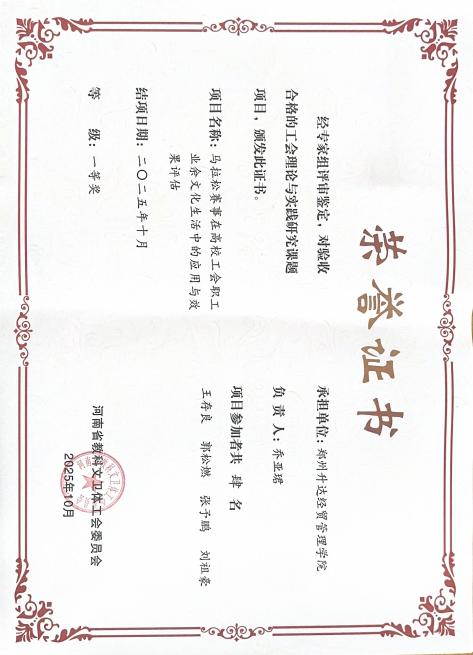 荣誉证书
经专家组评审鉴定，对验收
合格的工会理论与实践研究课题
项目，颁发此证书。
项目名称：马拉松赛事在高校工会职工
业余文化生活中的应用与效
果评估
结项日期：二〇二五年十月
等 级：一等奖
承担单位：郑州升达经贸管理学院
负 责 人：乔亚珺
项目参加者共 肆 名
王存良 郭松燃 张予鹏 刘祖豪
河南省教科文卫体工会委员会
2025年10月